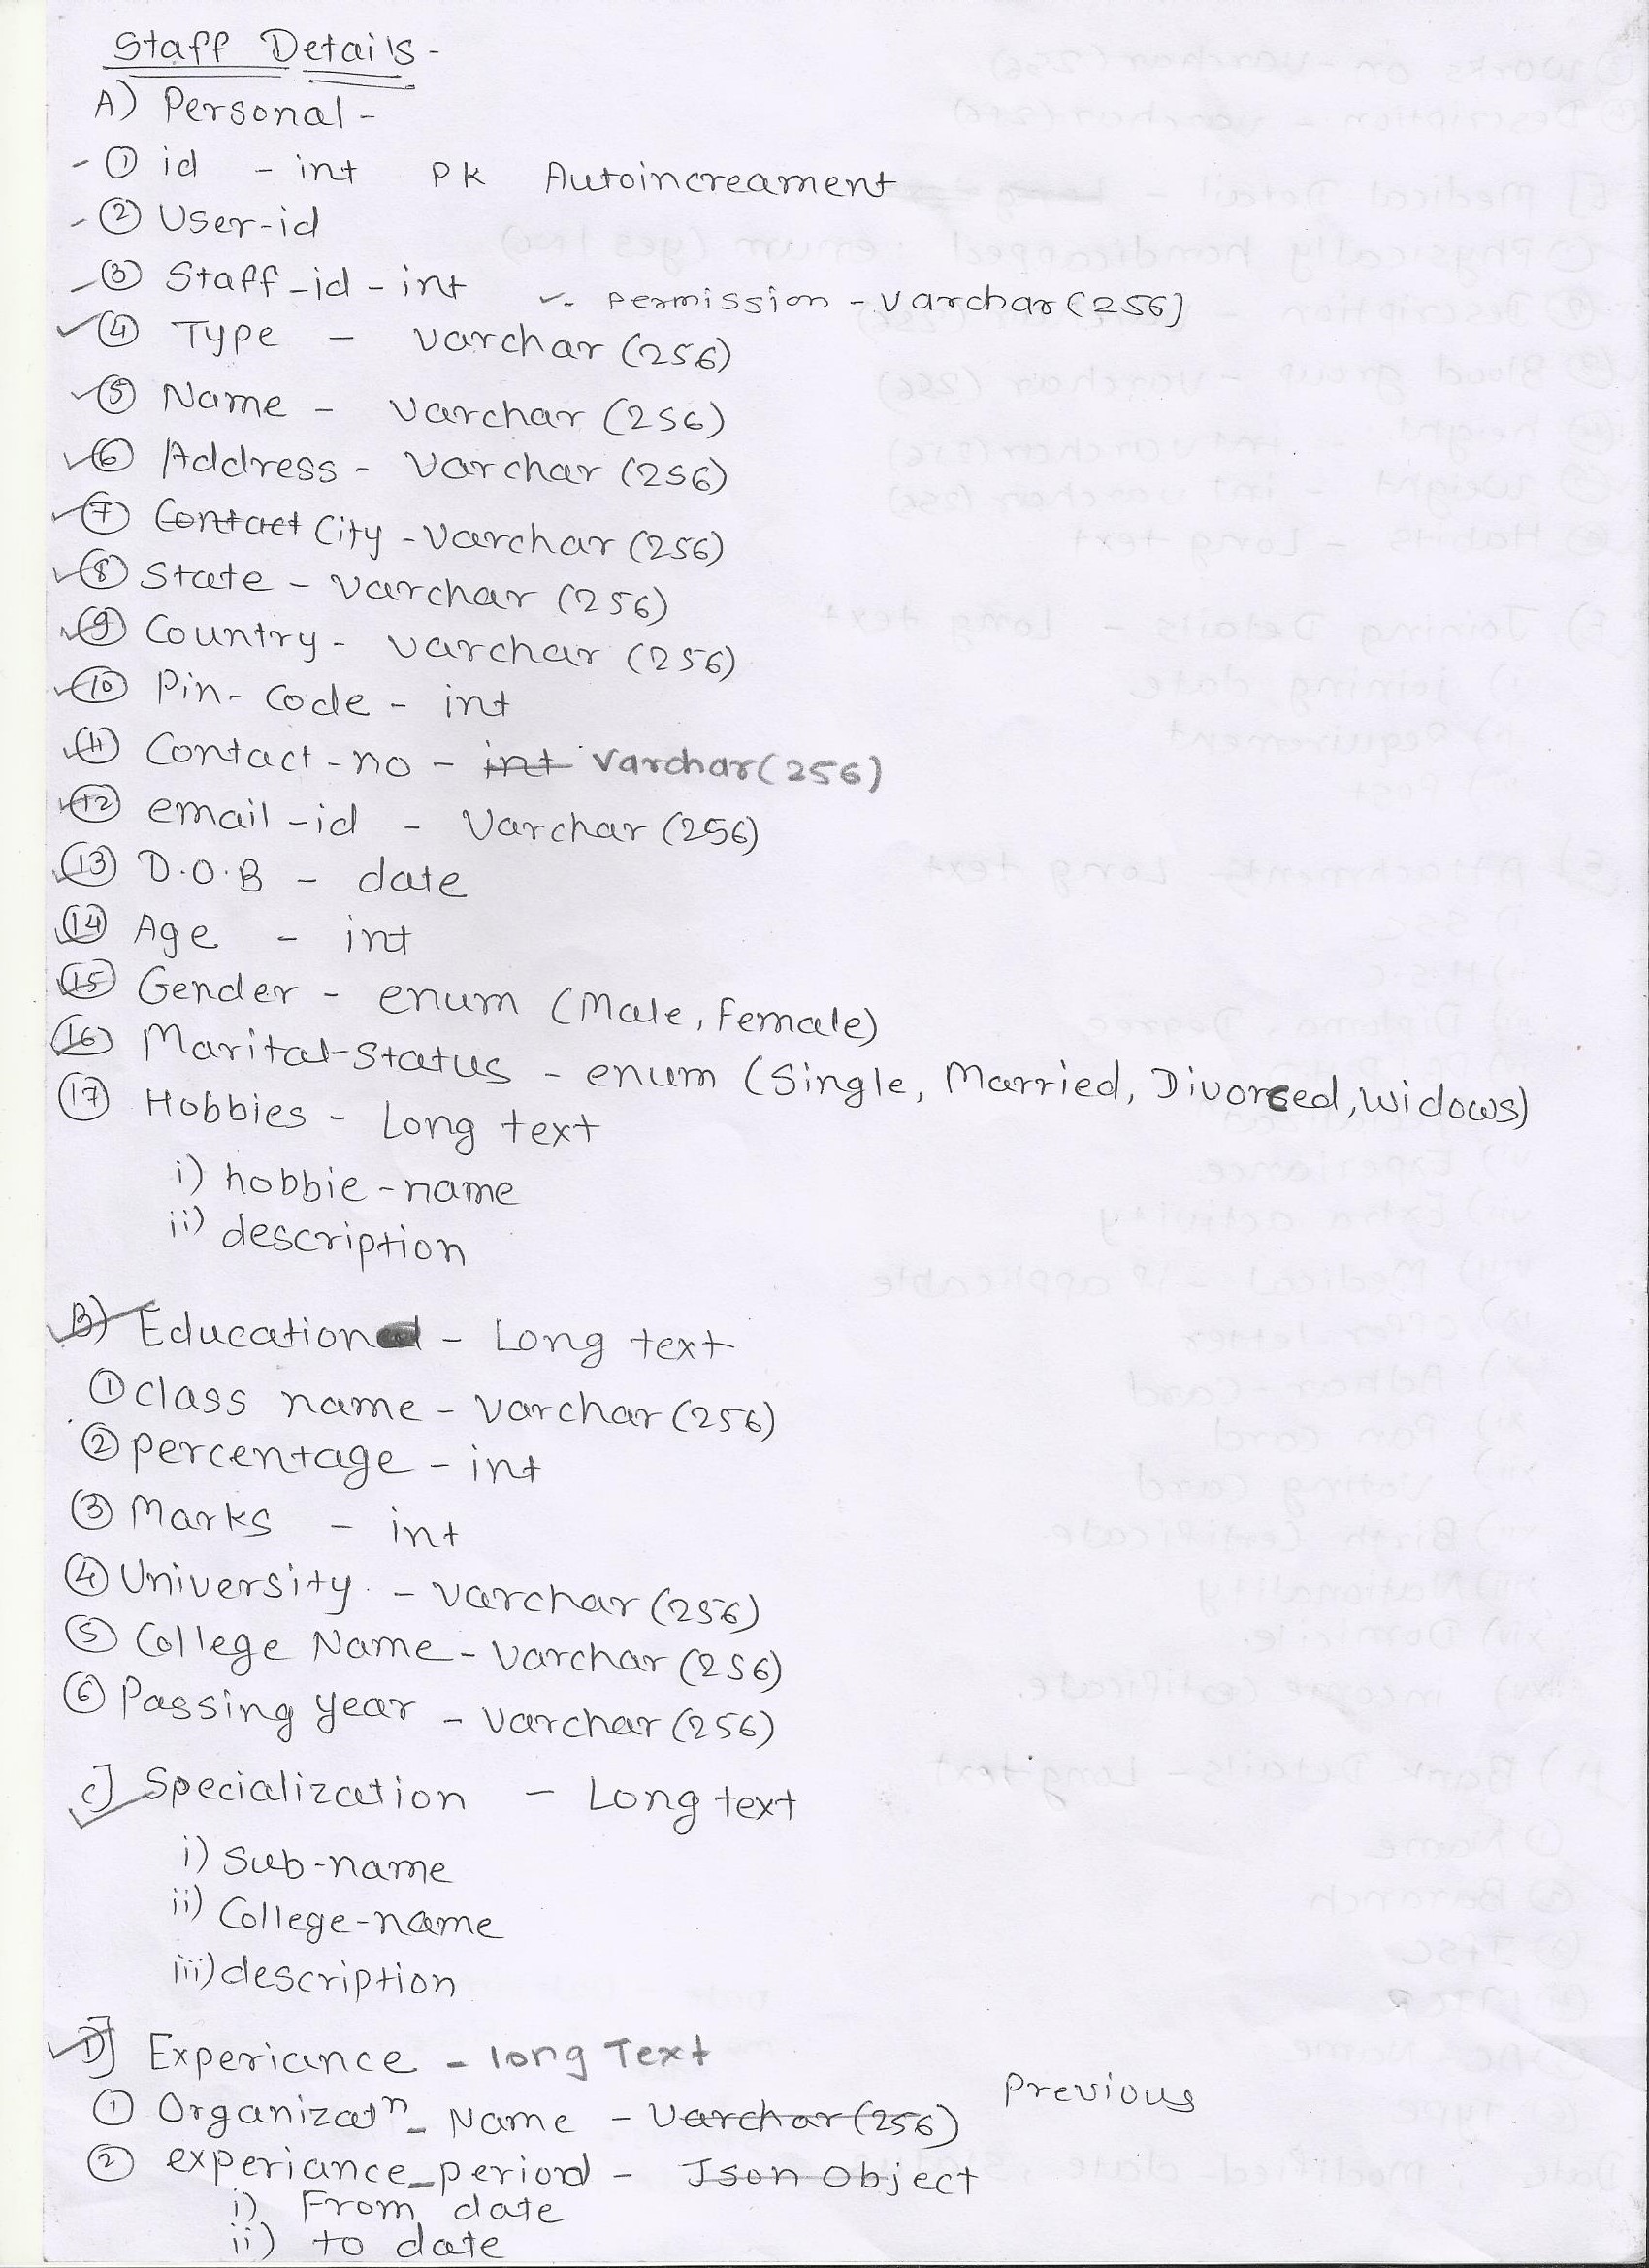 Staff Details -
A) Personal -
- ① id - int PK Autoincreament
- ② User-id
- ③ Staff-id - int ✓ - Permission - varchar (256)
✓ ④ Type - varchar (256)
✓ ⑤ Name - varchar (256)
✓ ⑥ Address - varchar (256)
✓ ⑦ Contact City - varchar (256)
✓ ⑧ State - varchar (256)
✓ ⑨ Country - varchar (256)
✓ ⑩ Pin-code - int
✓ ⑪ Contact-no - int varchar (256)
✓ ⑫ email-id - varchar (256)
✓ ⑬ D.O.B - date
✓ ⑭ Age - int
✓ ⑮ Gender - enum (Male, Female)
✓ ⑯ Marital-Status - enum (Single, Married, Divorced, Widows)
⑰ Hobbies - Long text
i) hobbie-name
ii) description
✓ B) Education - Long text
① class name - varchar (256)
② percentage - int
③ Marks - int
④ University - varchar (256)
⑤ College Name - varchar (256)
⑥ Passing year - varchar (256)
✓ C] Specialization - Long text
i) Sub-name
ii) College-name
iii) description
✓ D] Experiance - long Text
① Organizatⁿ_ Name - varchar (256) Previous
② experiance_period - Json Object
i) From date
ii) to date